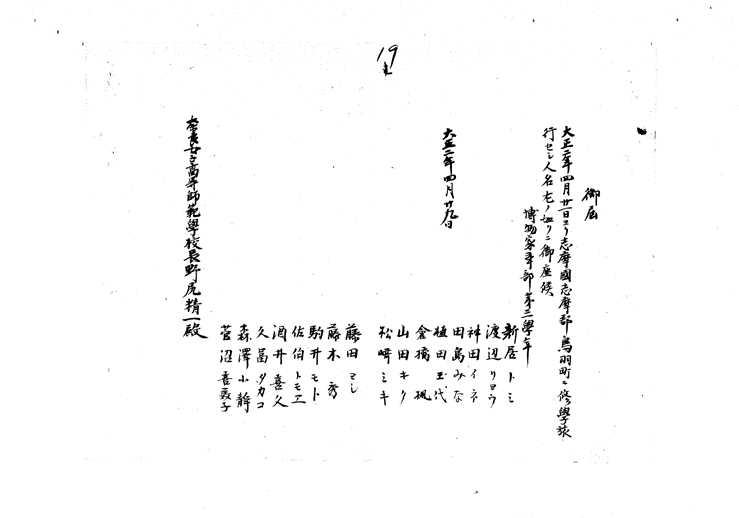 19
御届
大正二年四月廿一日ヨリ志摩國志摩郡鳥羽町ニ修學旅
行セシ人名左ノ如クニ御座候
博物家事部第三學年
新居トミ
渡辺リヨウ
神田イネ
田島みな
植田玉代
倉橋
山田キク
松崎ミキ
藤田マシ
藤木秀
駒井モト
佐伯トモエ
酒井喜久
久富タカコ
森澤小静
菅沼喜美子
大正二年四月廿九日
奈良女子高等師範學校長野尻精一殿